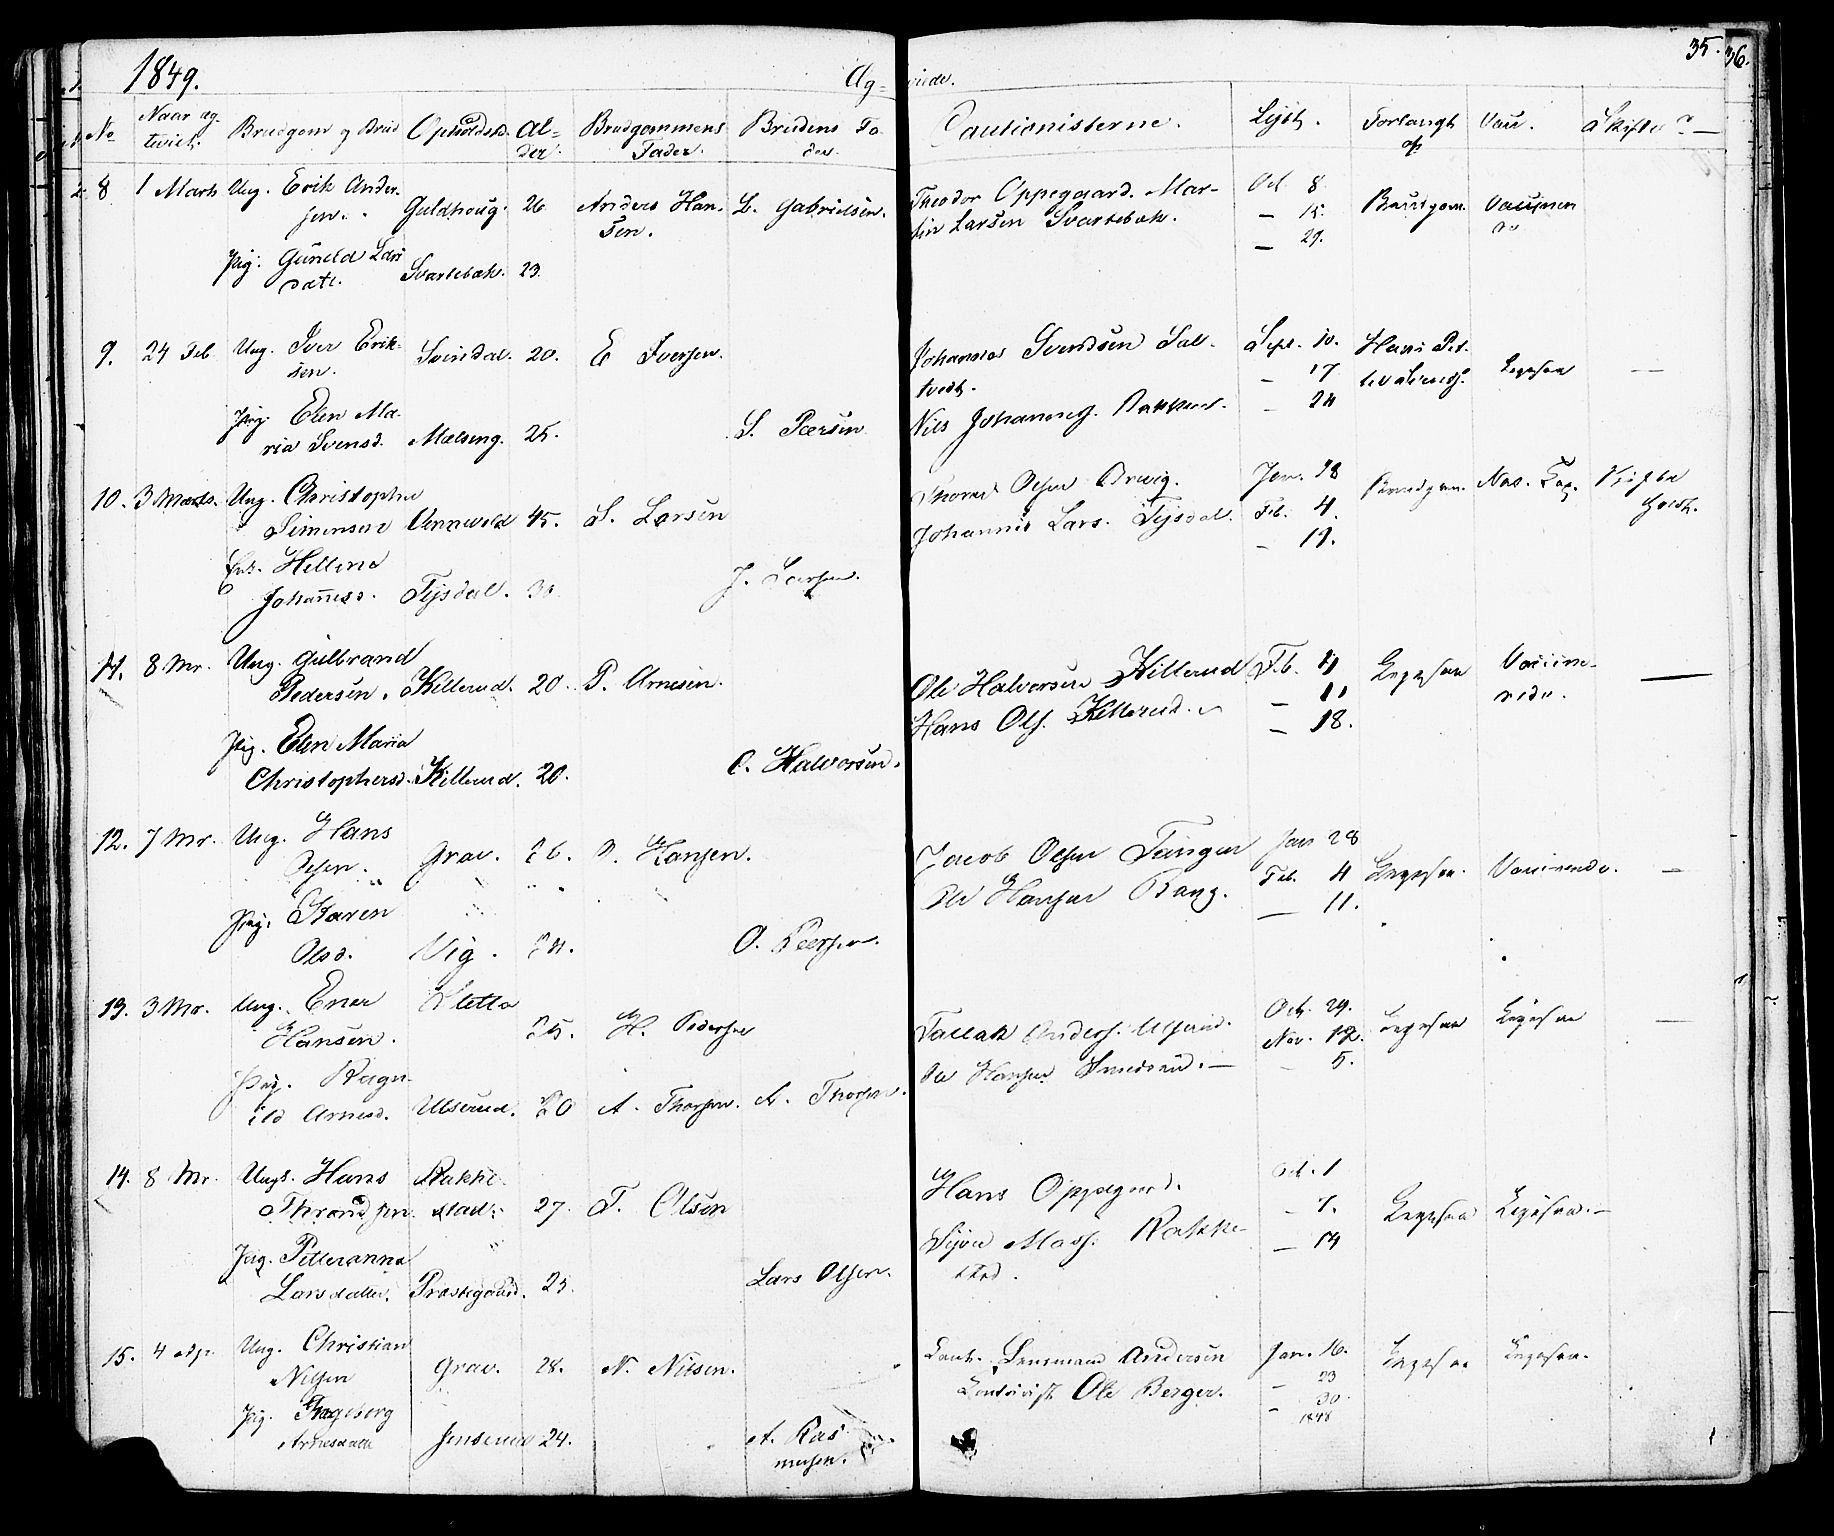 1849.
Ag=
viede.
35.
36.
No
Naar æg
teviet.
Brudgom og Brud
Opholdsst.
Al=
der.
Brudgommens
Fader.
Brudens Fa
der.
Cautionisterne.
Lyst.
Forlangt
af
Vacc.
Skifte?
8
1 Marts
Ung. Erik Ander-
sen.
Guldhoug.
26
Anders Han-
sen.
L. Gabrielsen.
Theodor Oppegaard. Mar-
tin Larsen Svartebæk.
Oct. 8.
— 15.
— 29.
Brudgom.
Pig. Gunild Lars
datt.
Svartebæk.
23.
9.
24 Feb
Ung. Iver Erik-
sen.
Svindal.
20.
E Iversen.
Johannes Svendsen
tvedt.
Nils Johannes. Bakken.
Sept. 10.
— 17
— 24
Hans
Ligesaa
—
Pig. Elen Ma-
ria Svensd.
25.
S. Peersen
10.
3 Marts.
Ung. Christopher
Simensen
45.
S. Larsen
Olsen
Johannes Lars. Tysdal.
Jan. 28
Feb. 4.
— 11.
Brudgom.
Skifte
holdt.
Hellene
Johannesd.
Tysdal.
30
J. Larsen.
11.
8 Mr.
Ung. Gulbrand
Pedersen.
Killerud.
20
P. Arnesen.
Ole Halvorsen Killerud
Hans Ols. Killerud.
Feb. 4
— 11
— 18.
Ligesaa
—
Pig. Elen Maria
Christophersd.
Killerud.
20.
C. Halvorsen.
12.
7 Mr.
Ung. Hans
Olsen.
Grav.
26.
O. Hansen.
Jacob Olsen Tangen
Ole Hansen Bang.
Jan 28
Feb. 4
— 11.
Ligesaa.
—
Pig. Karen
Olsd.
Vig.
24.
O. Peersen.
13.
3 Mr.
Ung. Ener
Hansen.
Sletta
25.
H. Pedersen
Tallak Anders. Ulserud.
Ole Hansen
Oct. 29.
Nov. 12.
— 5.
Ligesaa
Ligesaa
—
Pig. Ragn-
ild Arnesd.
Ulserud.
20
A. Thorsen.
A. Thorsen.
14.
8 Mr.
Ungk. Hans
Throndsen
Rakke-
stad.
27.
T. Olsen
Hans Oppegaard.
Mass. Rakke-
stad.
Oct. 1
— 7.
— 14
Ligesaa
Ligesaa.—
Pig. Pelleranna
Larsdatter.
Præstegaard.
25.
Lars Olsen.
15.
4 Ap.
Ung. Christian
Nilsen
Grav.
28.
N. Nilsen.
Lensmand Andersen
Ole Berger.
Jan. 16.
— 23
— 30.
1848
Ligesaa
Ligesaa.
Pig. Ingeborg
Arnesdatt
Jenserud
24.
A. Ras
musen.